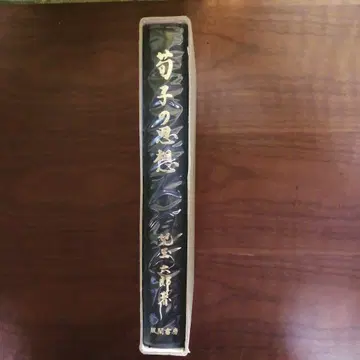 荀子の思想
児玉六郎著
風間書房